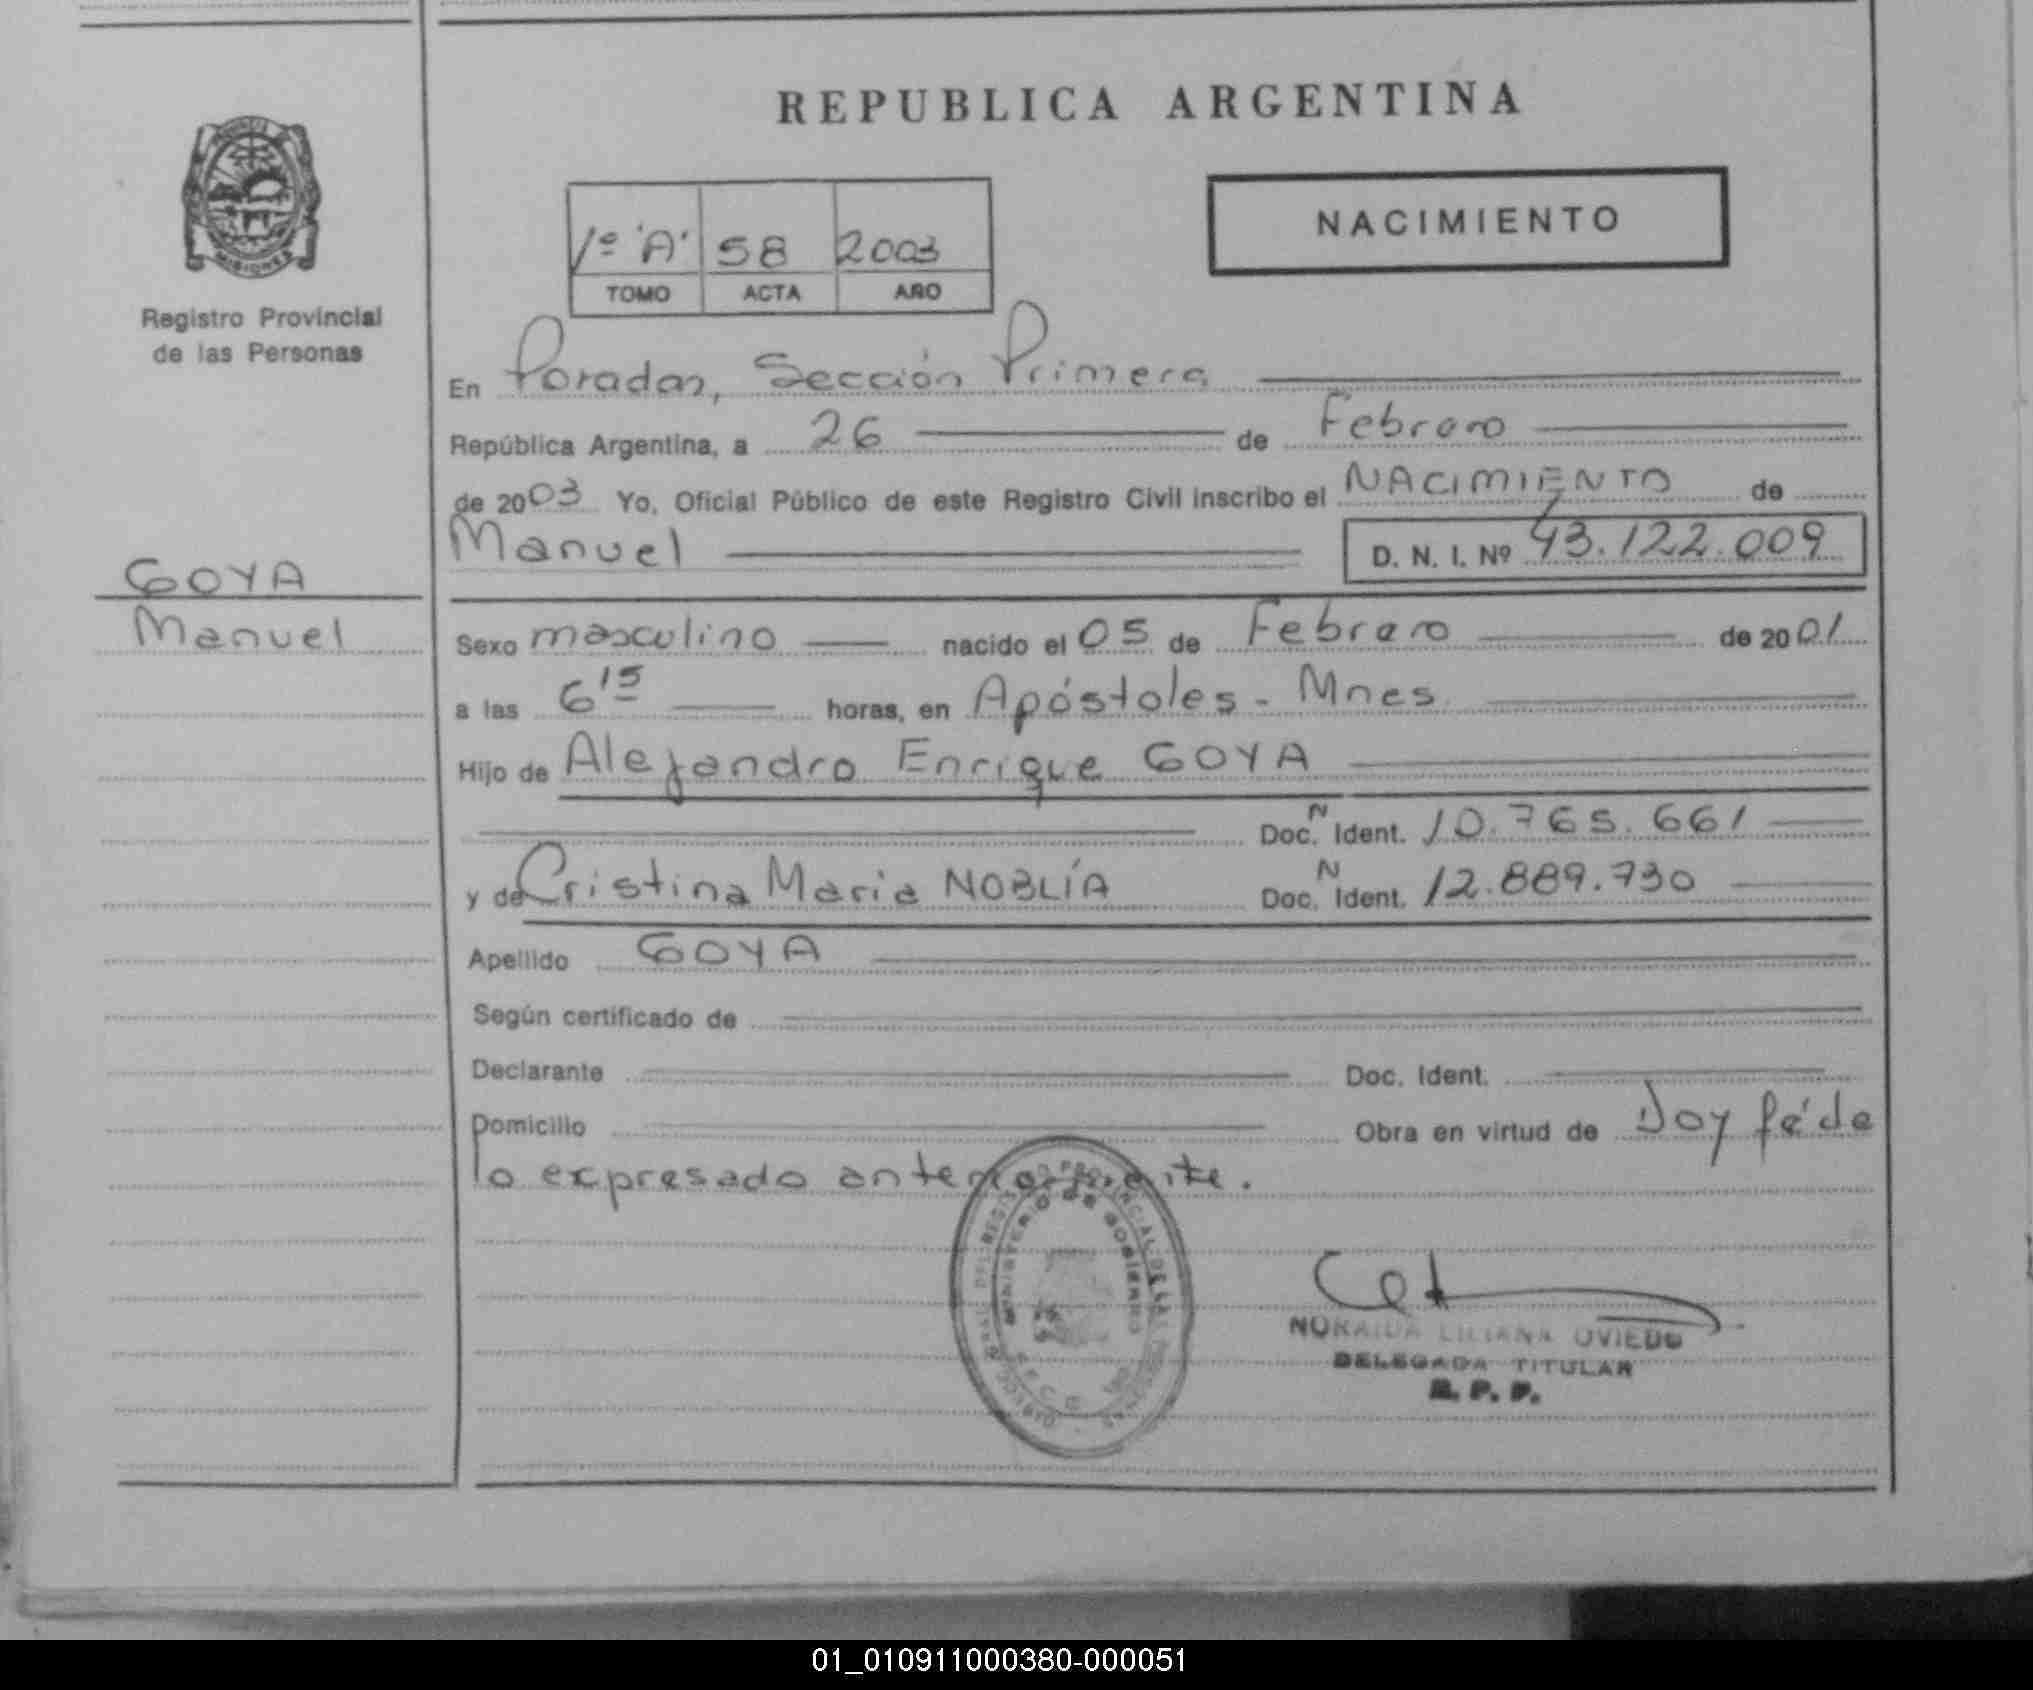 REPUBLICA ARGENTINA
NACIMIENTO
1º "A" 58 2003
TOMO ACTA AÑO
MISIONES
Registro Provincial
de las Personas
En Posadas, Sección Primera
República Argentina, a 26 de Febrero
de 2003 Yo, Oficial Público de este Registro Civil inscribo el NACIMIENTO de
Manuel D. N. I. Nº 43.122.009
GOYA
Manuel
Sexo masculino nacido el 05 de Febrero de 2001
a las 6 15 horas, en Apóstoles - Mnes.
Hijo de Alejandro Enrique GOYA
Doc. N Ident. 10.765.661
y de Cristina Maria NOBLÍA Doc. N Ident. 12.889.730
Apellido GOYA
Según certificado de
Declarante Doc. Ident.
Domicilio Obra en virtud de Doy fé de
lo expresado anteriormente.
MINISTERIO DE GOBIERNO
NORAIDA LILIANA OVIEDO
DELEGADA TITULAR
R. P. P.
01_010911000380-000051